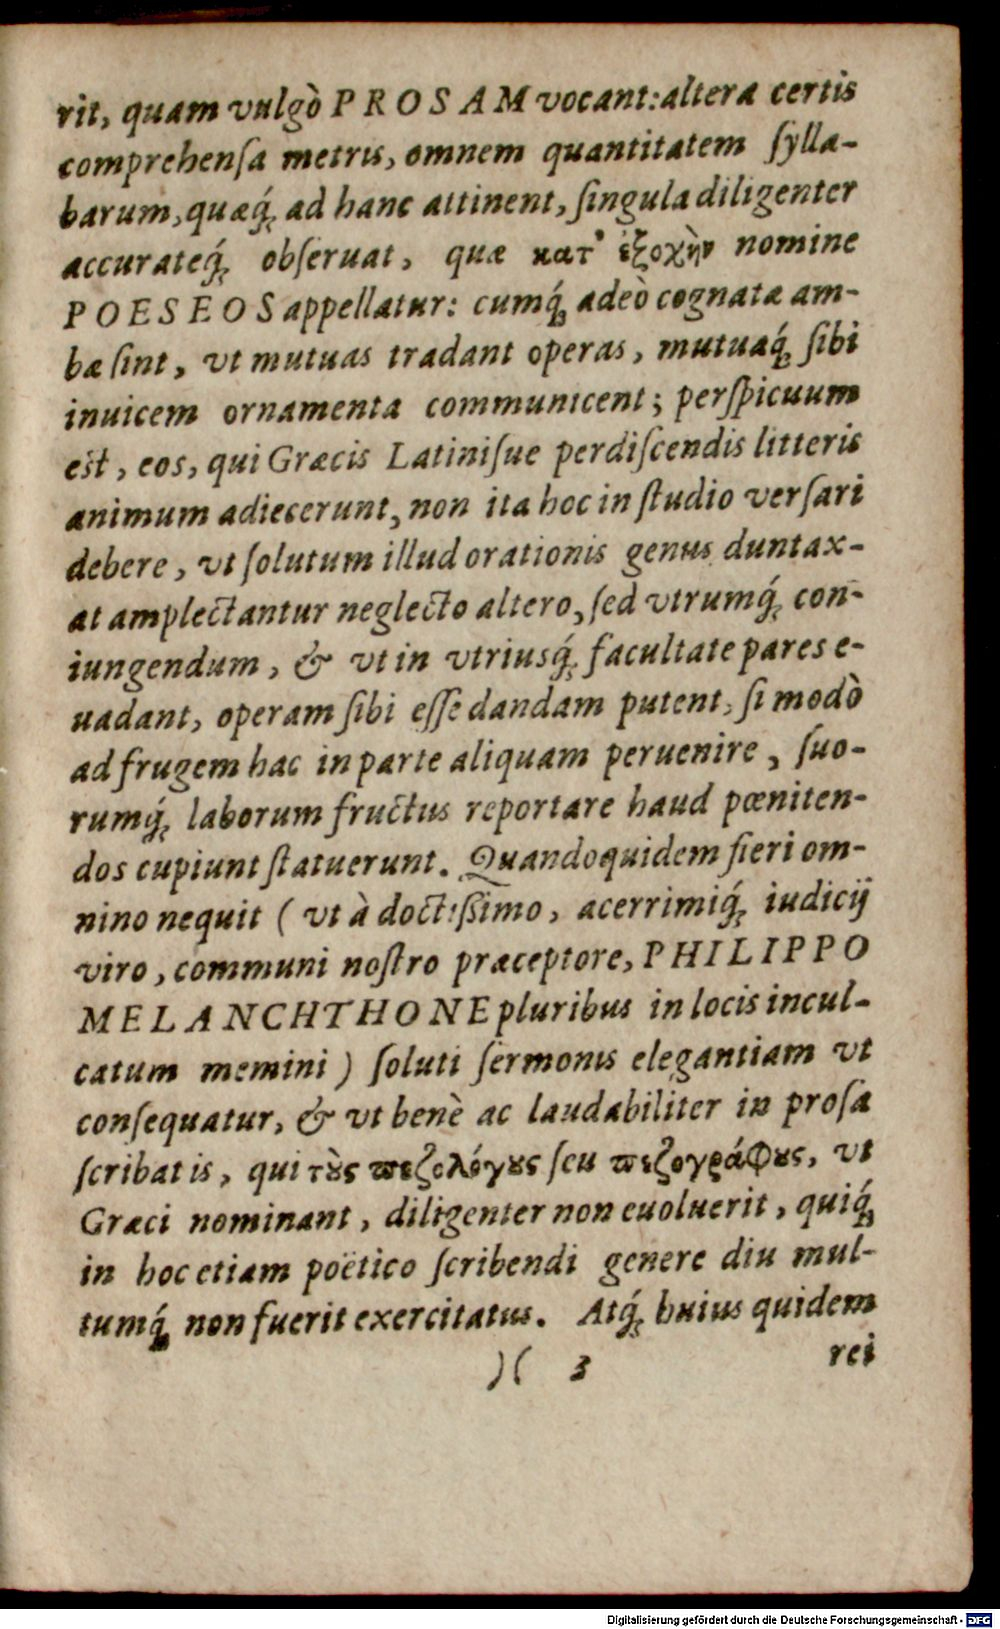 rit, quam vulgò PROSAM vocant: altera certis
comprehenſa metris, omnem quantitatem ſylla-
barum, quæq́; ad hanc attinent, ſingula diligenter
accurateq́; obſeruat, quæ κατ' ἐξοχὴν nomine
POESEOS appellatur: cumq́; adeò cognatæ am-
bæ ſint, vt mutuas tradant operas, mutuaq́; ſibi
inuicem ornamenta communicent; perſpicuum
eſt, eos, qui Græcis Latiniſue perdiſcendis litteris
animum adiecerunt, non ita hoc in ſtudio verſari
debere, vt ſolutum illud orationis genus duntax-
at amplectantur neglecto altero, ſed vtrumq́; con-
iungendum, & vt in vtriusq́; facultate pares e-
uadant, operam ſibi eſſe dandam putent, ſi modò
ad frugem hac in parte aliquam peruenire, ſuo-
rumq́; laborum fructus reportare haud pœniten-
dos cupiunt ſtatuerunt. Quandoquidem fieri om-
nino nequit ( vt à doctißimo, acerrimiq́; iudicij
viro, communi noſtro præceptore, PHILIPPO
MELANCHTHONE pluribus in locis incul-
catum memini ) ſoluti ſermonis elegantiam vt
conſequatur, & vt benè ac laudabiliter in proſa
ſcribat is, qui τȣ̀ς πεζολόγȣς ſeu πεζογράφȣς, vt
Græci nominant, diligenter non euoluerit, quiq́;
in hoc etiam poëtico ſcribendi genere diu mul-
tumq́; non fuerit exercitatus. Atq́; huius quidem
)( 3 rei
Digitalisierung gefördert durch die Deutsche Forschungsgemeinschaft - DFG